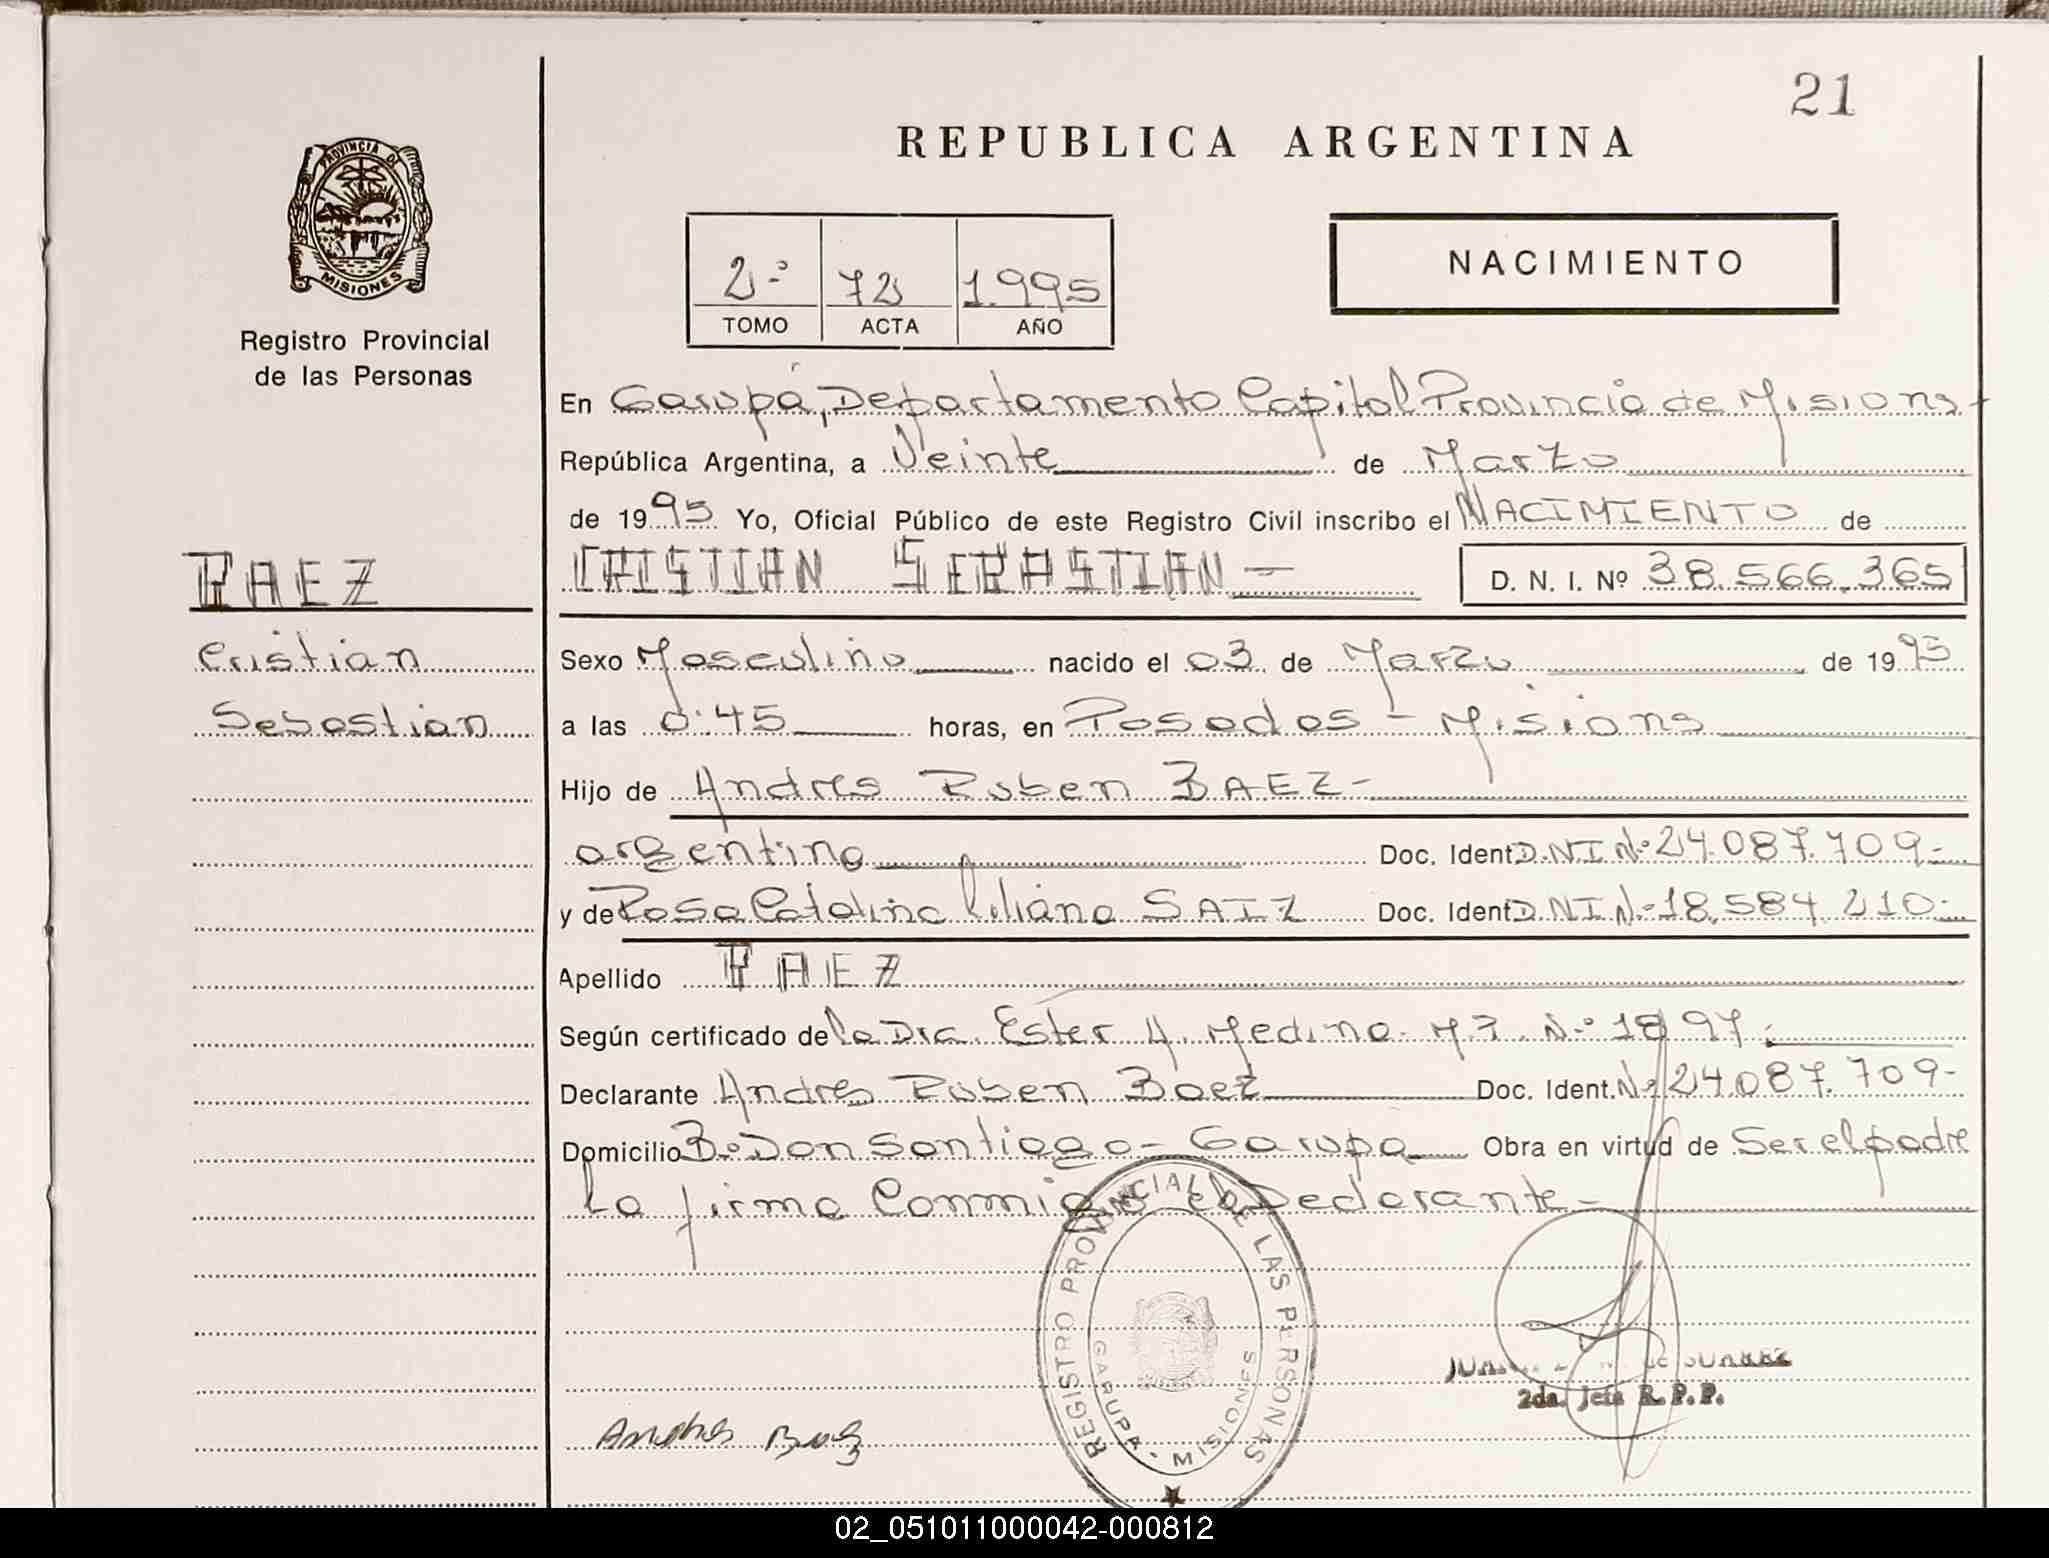 21
REPUBLICA ARGENTINA
PROVINCIA DE
MISIONES
Registro Provincial
de las Personas
2º 72 1.995
TOMO ACTA AÑO
NACIMIENTO
En Garupá, Departamento Capital Provincia de Misions
República Argentina, a Veinte de Marzo
de 1995 Yo, Oficial Público de este Registro Civil inscribo el NACIMIENTO de
CRISTIAN SEBASTIAN -
D. N. I. Nº 38.566.365
PAEZ
Cristian
Sebastian
Sexo Masculino nacido el 03 de Marzo de 1995
a las 0:45 horas, en Posadas - Misions
Hijo de Andres Ruben BAEZ-
argentino Doc. Ident D.N.I Nº 24.087.709-
y de Rosa Catalina Liliana SAIZ Doc. Ident D.N.I Nº 18.584.210-
Apellido PAEZ
Según certificado de la Dra. Ester A. Medina. M.P. Nº 1897.
Declarante Andres Ruben Baez Doc. Ident. Nº 24.087.709-
Domicilio Bº Don Santiago - Garupa Obra en virtud de Ser el padre
La firma Conmigo el Declarante -
REGISTRO PROVINCIAL DE LAS PERSONAS
GARUPA - MISIONES
2da. Jefa R.P.P.
Andres Baez
02_051011000042-000812